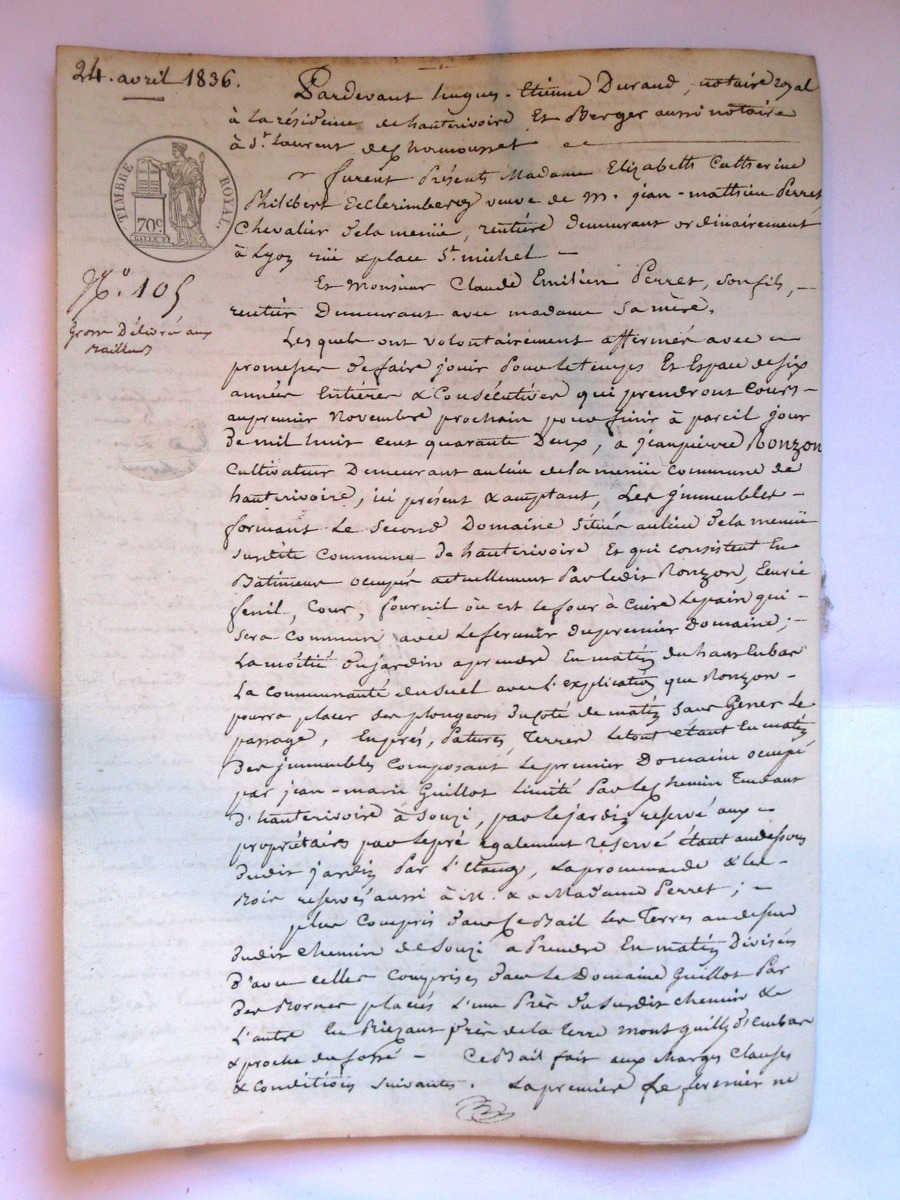 24. avril 1836.
Pardevant hugues-Etienne Durand, notaire royal
à la résidence de hauterivoire Et Berger aussi notaire
à St Laurent de chamousset
TIMBRE ROYAL
70c
furent Présents Madame Elizabeth Catherine
Philibert veuve de M. jean-mathieu Perret,
Chevalier de la menüe, rentière demeurant ordinairement
à Lyon rüe & place St michel -
No. 105
Grosse Délivrée aux
Et Monsieur Claude Emilien Perret, son fils, -
rentier Demeurant avec madame sa mère.
Lesquels ont volontairement affermé avec
promesse de faire jouir Pour le temps Et Espace de six
années Entières & Consécutives qui prendront cours -
au premier Novembre prochain pour finir à pareil jour
de mil huit cent quarante Deux, a jean pierre Ronzon
Cultivateur Demeurant au lieu de la menüe Commune de
hauterivoire, ici présent & acceptant, Les jmmeubles -
formant Le second Domaine situé au lieu de la menüe
susdite Commune de hauterivoire Et qui consistent En
Batiments occupés actuellement Par ledit Ronzon, Ecurie
fenil, Cour, fournil où est le four à Cuire Le pain qui -
sera Commun avec Le fermier du premier Domaine; -
La moitié du jardin a prendre En matin du haut En bas
La communauté du suel avec l'explication que Ronzon -
pourra placer ses plongeons du côté de matin sans Gener Le
passage, En prés, Patures, Terres Le tout étant En matin
Des jmmeubles Composant Le premier Domaine occupé
par jean-marie Guillot limité Par le chemin Tendant
d'hauterivoire à Souzi, par le jardin reservé aux -
propriétaires par le pré également réservé étant au dessous
dudit jardin Par L'Etang, La promenade &
reservés aussi à M. & a Madame Perret; -
plus Compris dans ce Bail Les Terres au dessus
dudit chemin de Souzi a Prendre En matin Divisées
d'avec celles Comprises dans Le Domaine Guillot Par
Des Bornes placées L'une Près du susdit chemin &
L'autre En près de la terre d'Embas
& proche du fossé - Ce Bail fait aux charges Clauses
& Conditions suivantes. La première Le fermier ne